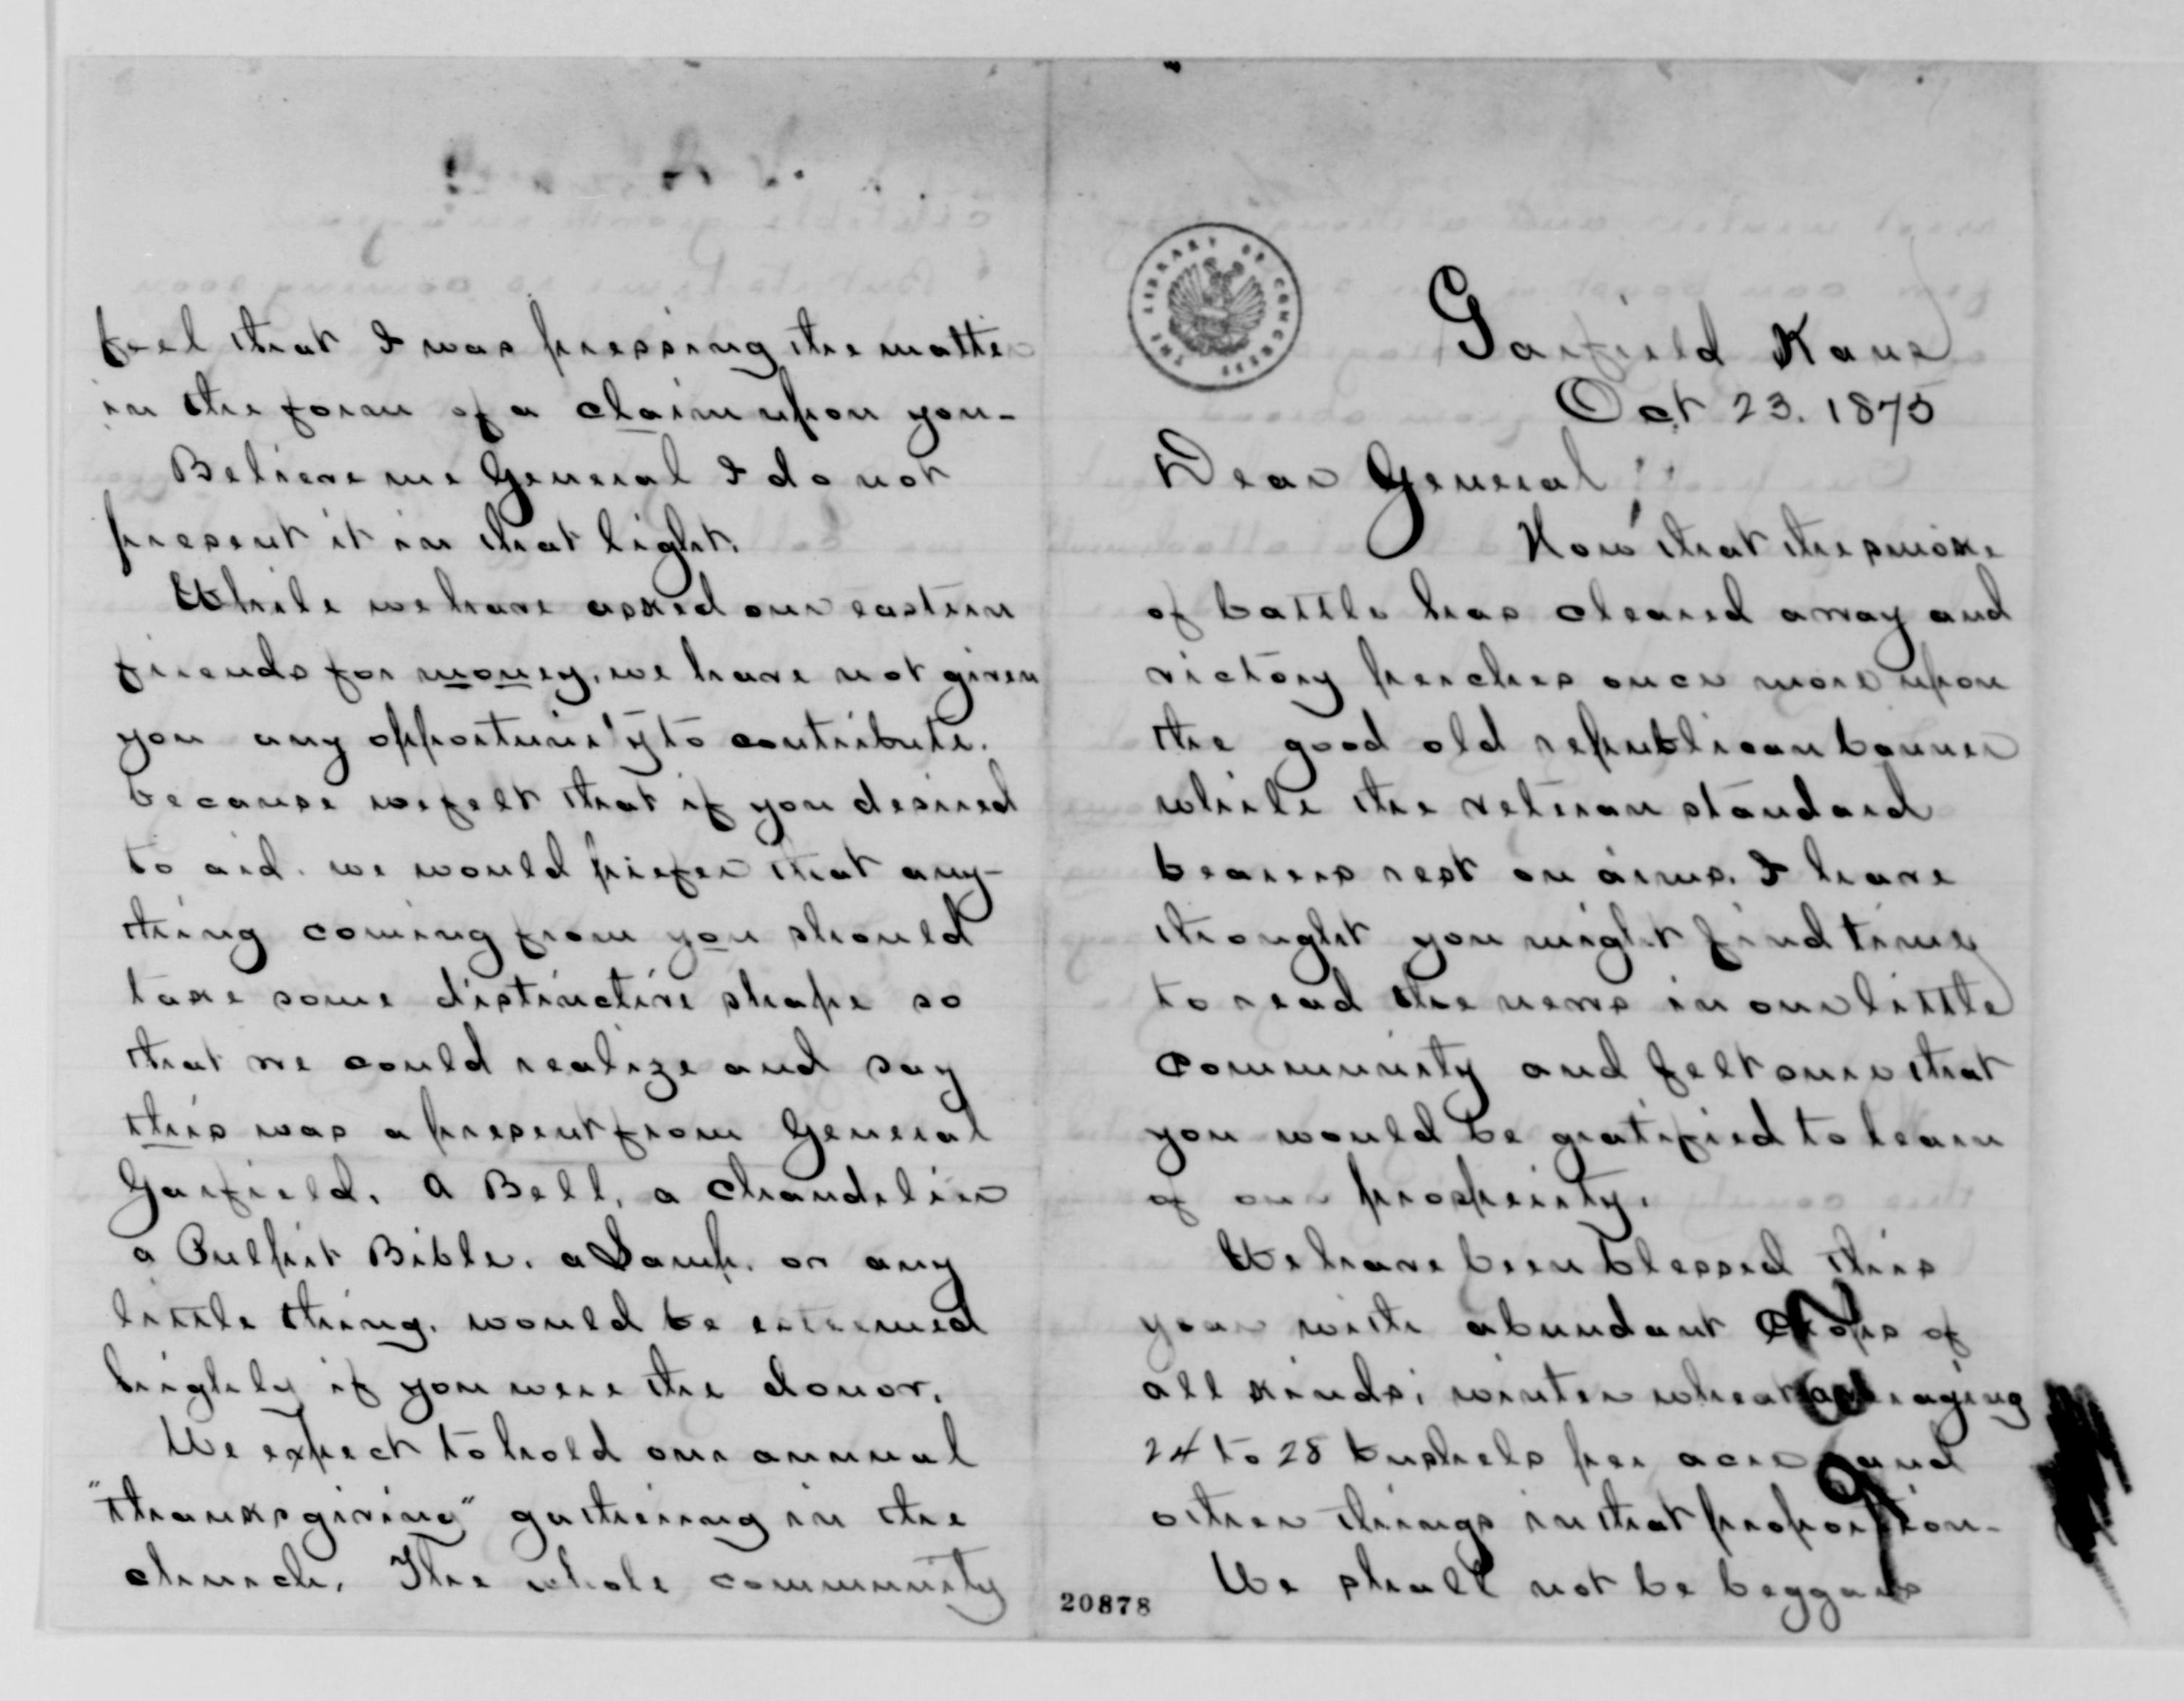 feel that I was pressing the matter
in the form of a claim upon you-
Believe me General I do not
present it in that light.
While we have asked our eastern
friends for money, we have not given
you any opportunity to contribute.
because we felt that if you desired
to aid. we would prefer that any-
thing coming from you should
take some distinctive shape so
that we could realize and say
this was a present from General
Garfield. A Bell, a chandelier
a Pulpit Bible. a Lamp. or any
little thing. would be esteemed
highly if you were the donor.
We expect to hold our annual
"thanksgiving" gathering in the
church. The whole community
THE LIBRARY OF CONGRESS
Garfield Kans
Oct 23. 1875
Dear General!
Now that the smoke
of battle has cleared away and
victory perches once more upon
the good old republican banner
while the veteran standard
bearers rest on arms. I have
thought you might find time
to read the news in our little
community and felt sure that
you would be gratified to learn
of our prosperity.
We have been blessed this
year with abundant crops of
all kinds; winter wheat averaging
24 to 28 bushels per acre and
other things in that proportion-
We shall not be beggars
20878